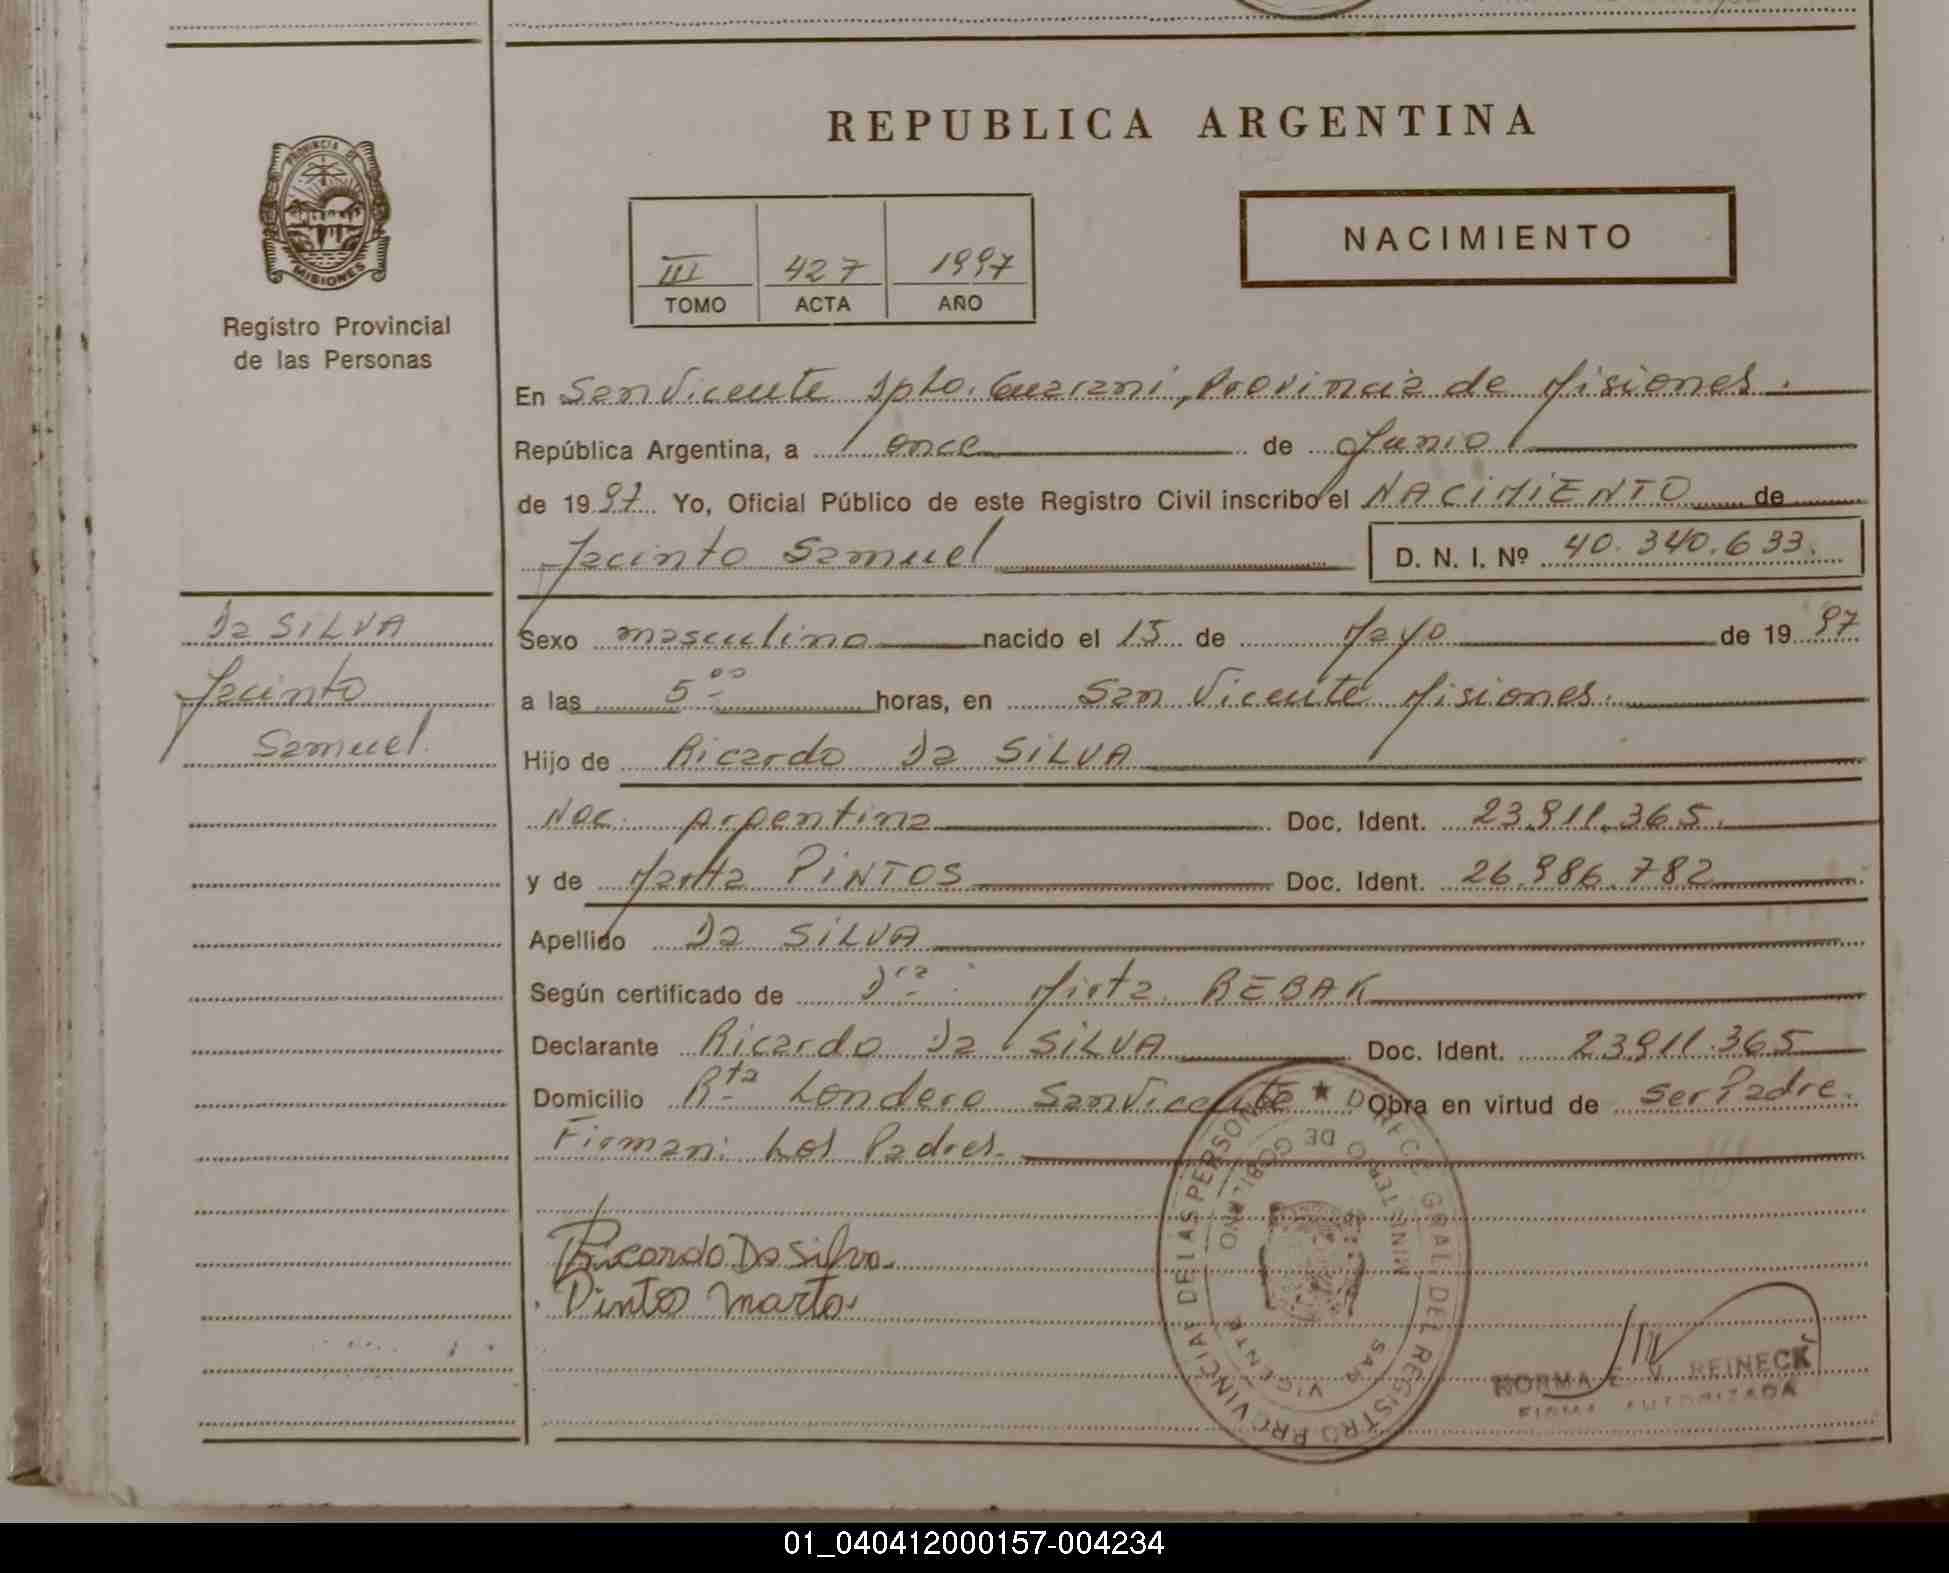 REPUBLICA ARGENTINA
PROVINCIA DE
MISIONES
Registro Provincial
de las Personas
NACIMIENTO
III 427 1997
TOMO ACTA AÑO
En San Vicente Dpto. Guarani, Provincia de Misiones.
República Argentina, a once de Junio
de 1997 Yo, Oficial Público de este Registro Civil inscribo el NACIMIENTO de
Jacinto Samuel D. N. I. Nº 40.340.633.
Da SILVA
Jacinto
Samuel.
Sexo masculino nacido el 15 de Mayo de 1997
a las 5:00 horas, en San Vicente Misiones.
Hijo de Ricardo Da SILVA
Nac. Argentina Doc. Ident. 23.911.365.
y de Marta PINTOS Doc. Ident. 26.986.782
Apellido Da SILVA
Según certificado de Dra. Mirta REBAK
Declarante Ricardo Da SILVA Doc. Ident. 23911.365
Domicilio Rta Londero San Vicente Obra en virtud de ser Padre.
Firman: Los Padres.
Ricardo Da Silva.
Pintos Marta
DIRECC. GRAL. DEL REGISTRO PROVINCIAL DE LAS PERSONAS
MINISTERIO DE GOBIERNO
SAN VICENTE
NORMA E. V. REINECK
FIRMA AUTORIZADA
01_040412000157-004234